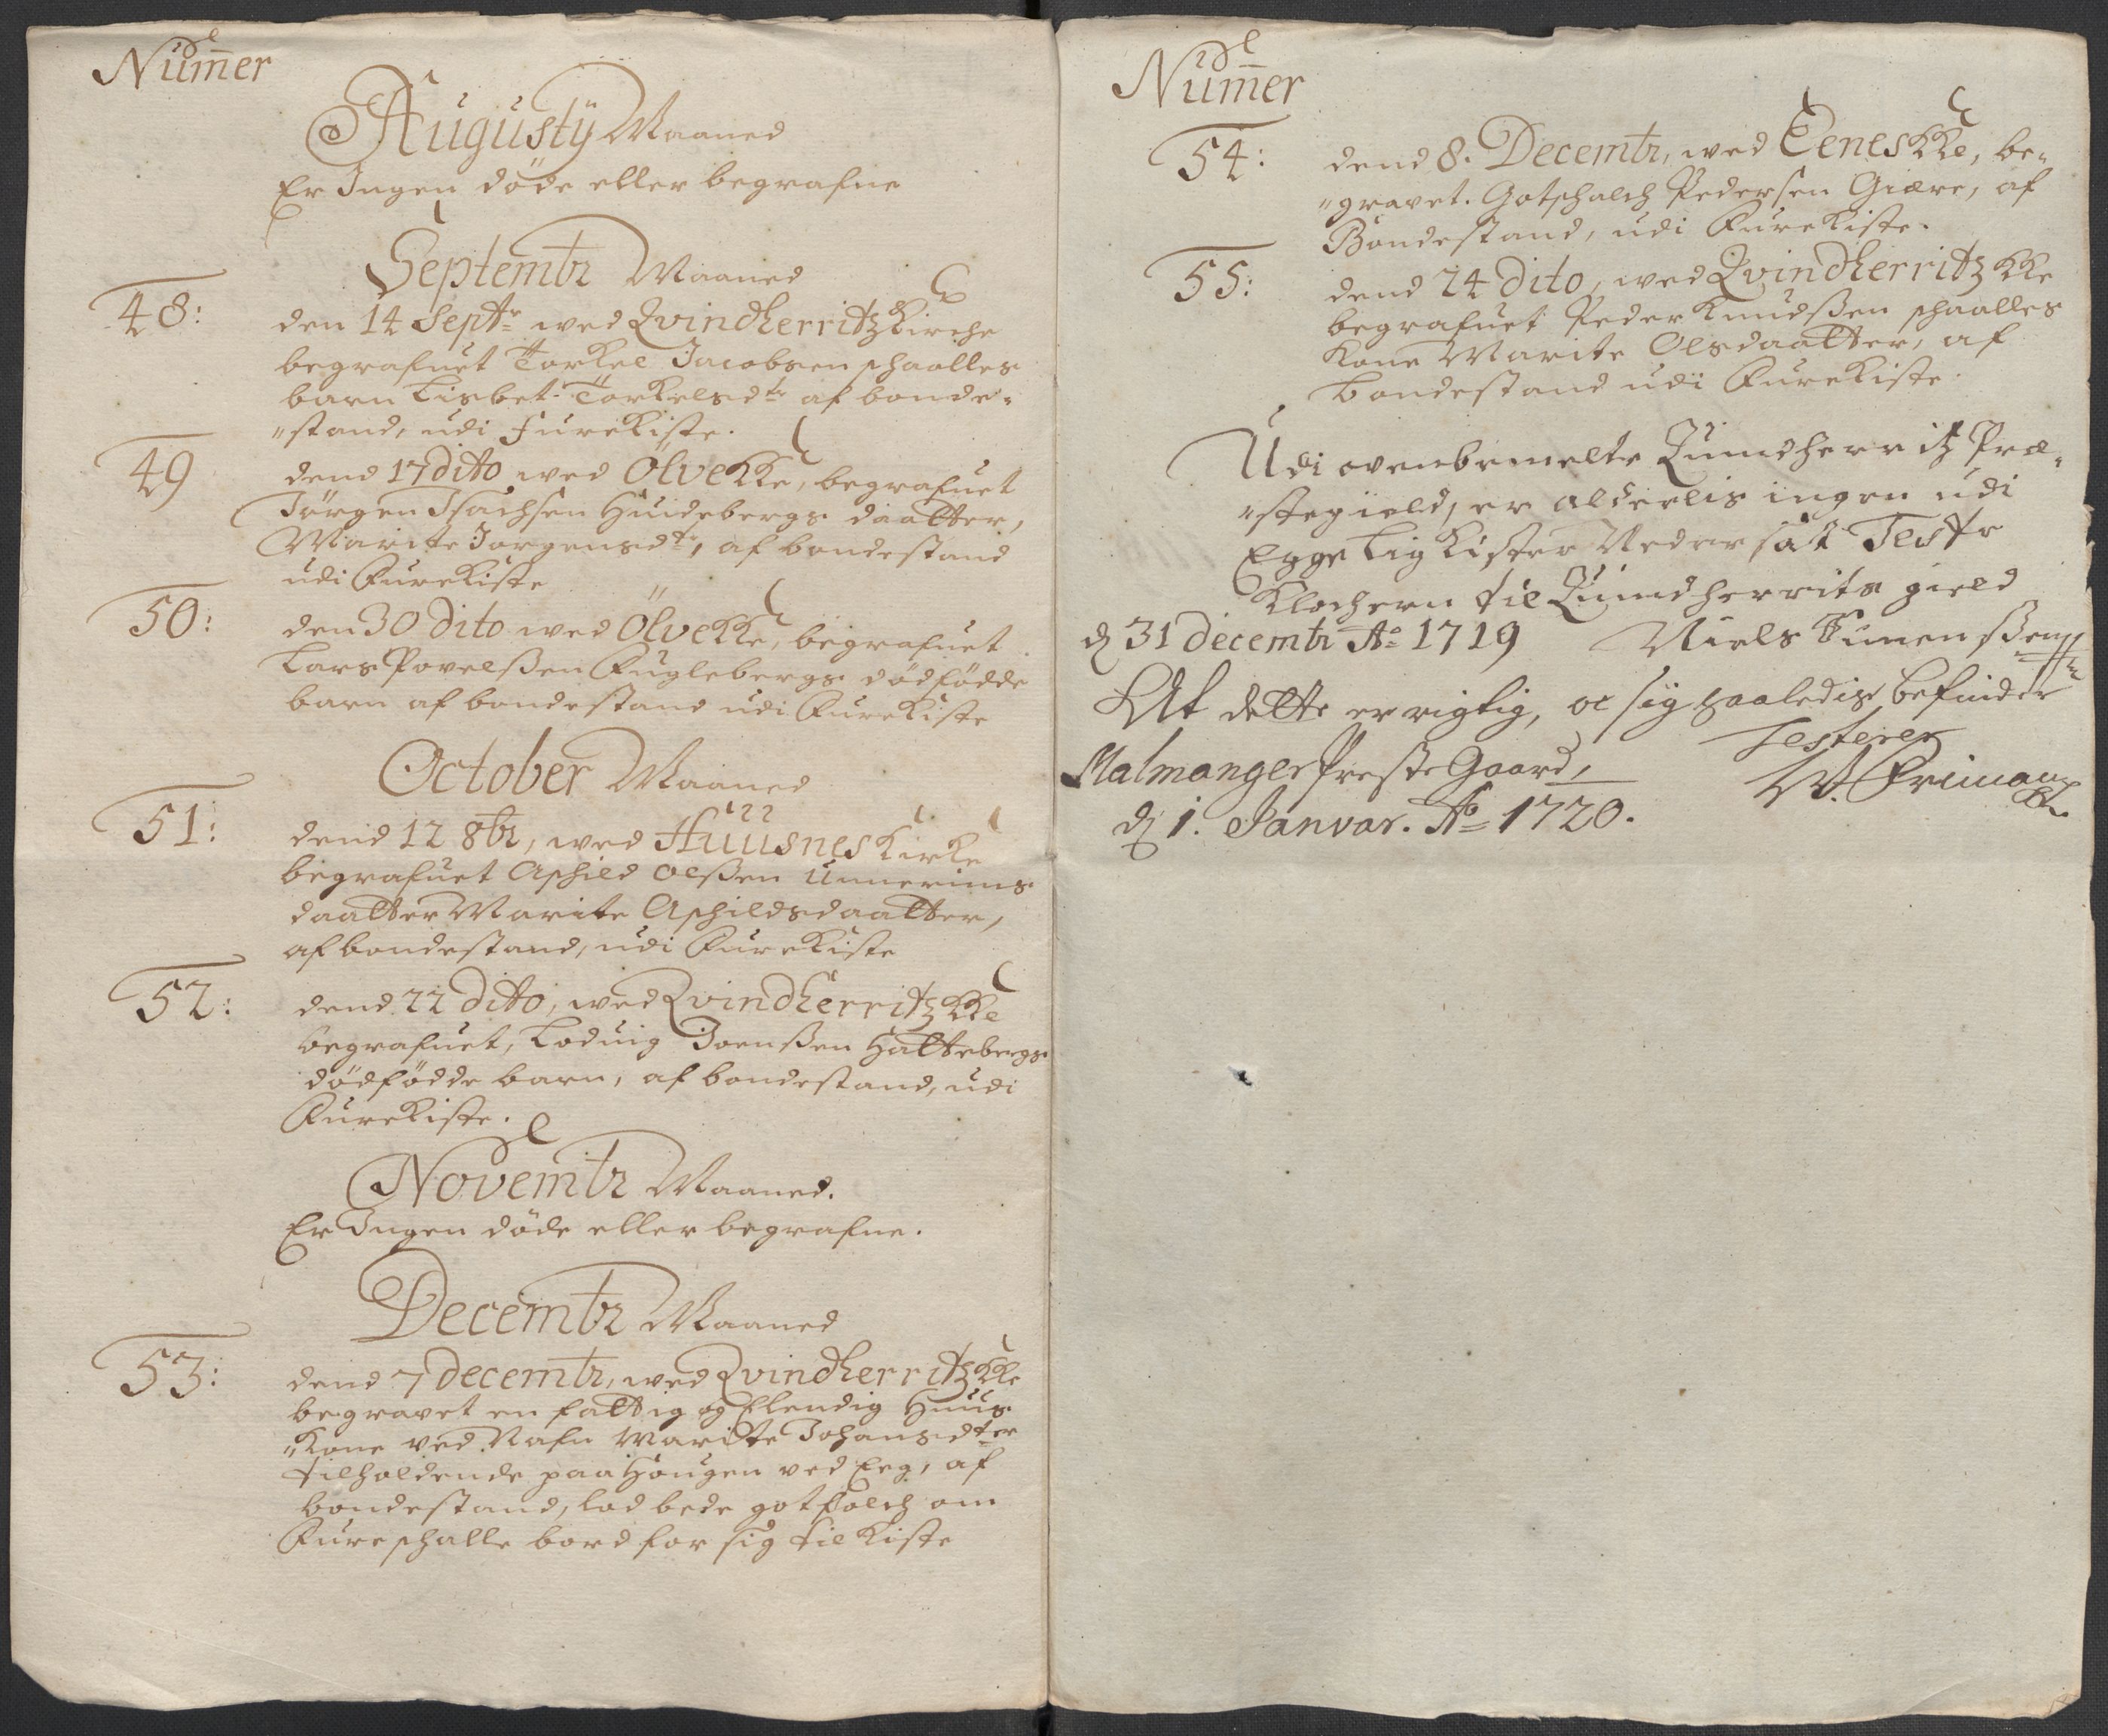 Num̅er
Augusty Maaned
Er Ingen döde eller begrafne
Septembr Maaned
48:
den 14 Septr wed Qvindherritz Kirche
begrafuet Torkel Jacobsen schaalles
barn Lisbet Torkelsdtr af bonde„
„stand, udi fure Kiste.
49
dend 17 dito wed Ölve KKe, begrafuet
Jörgen Isachsen Huidebergs daatter,
Marite Jorgensdtr, af bondestand
udi Fure Kiste
50:
den 30 Dito wed Ölve KKe, begrafuet
Lars Povelßen Fuglebergs dödfödde
barn af bondestand udi Fure Kiste
October Maaned
51:
dend 12 8br, wed Huusnes Kirke
begrafuet Aschild Olßen Unnerims
daatter Marite Aschildsdaatter,
af bondestand, udi Fure Kiste
52:
dend 22 dito, wed Qvindherritz KKe
begrafuet, Loduig Joenßen Hattebergs
dödfödde barn, af bondestand, udi
Fure Kiste.
Novembr Maaned.
Er Ingen döde eller begrafne.
Decembr Maaned
53:
dend 7 decembr, wed Qvindherritz KKe
begravet en fattig og Elendig Huus
„Kone ved Nafn Marite Johansdter
tilholdende paa Hougen ved Eeg, af
bondestand, lod bede got folch om
Fure schalle bord for sig til Kiste
Num̅er
54:
dend 8. Decembr, wed Eenes KKe, be„
„gravet. Gotschalch Pedersen Giære, af
Bondestand, udi Fure Kiste.
55:
dend 24 dito, wed Qvindherritz KKe
begrafuet Peder Knudßen schaalles
Kone Marite Olsdaatter, af
bondestand udi Fure Kiste.
Udi ovenbemelte Quindherritz Præ„
„stegield, er alderlis ingen udi
Egge Lig Kister Nedersat Teste
Klochern til Quindherrits gield
d 31 decembr Ao 1719 Niels Simenßen
At dette er rigtig, oc sig saaledis befinder
Testerer
Malmanger Preste Gaard,
W. Frimann
d 1. Janvar. Ao 1720.